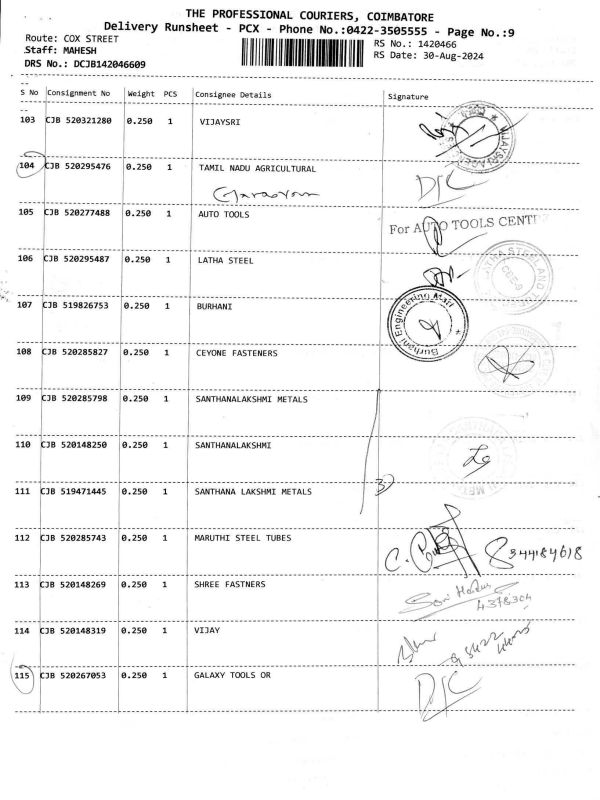 THE PROFESSIONAL COURIERS, COIMBATORE
Delivery Runsheet - PCX - Phone No.:0422-3505555 - Page No.:9
Route: COX STREET
RS No.: 1420466
Staff: MAHESH
RS Date: 30-Aug-2024
DRS No.: DCJB142046609
S No Consignment No Weight PCS Consignee Details Signature
103 CJB 520321280 0.250 1 VIJAYSRI
104 CJB 520295476 0.250 1 TAMIL NADU AGRICULTURAL
D/C
105 CJB 520277488 0.250 1 AUTO TOOLS
For AUTO TOOLS CENTRE
106 CJB 520295487 0.250 1 LATHA STEEL
107 CJB 519826753 0.250 1 BURHANI
Burhani Engineering Mart
108 CJB 520285827 0.250 1 CEYONE FASTENERS
109 CJB 520285798 0.250 1 SANTHANALAKSHMI METALS
110 CJB 520148250 0.250 1 SANTHANALAKSHMI
111 CJB 519471445 0.250 1 SANTHANA LAKSHMI METALS
3
112 CJB 520285743 0.250 1 MARUTHI STEEL TUBES
113 CJB 520148269 0.250 1 SHREE FASTNERS
4378304
114 CJB 520148319 0.250 1 VIJAY
115 CJB 520267053 0.250 1 GALAXY TOOLS OR
D/C